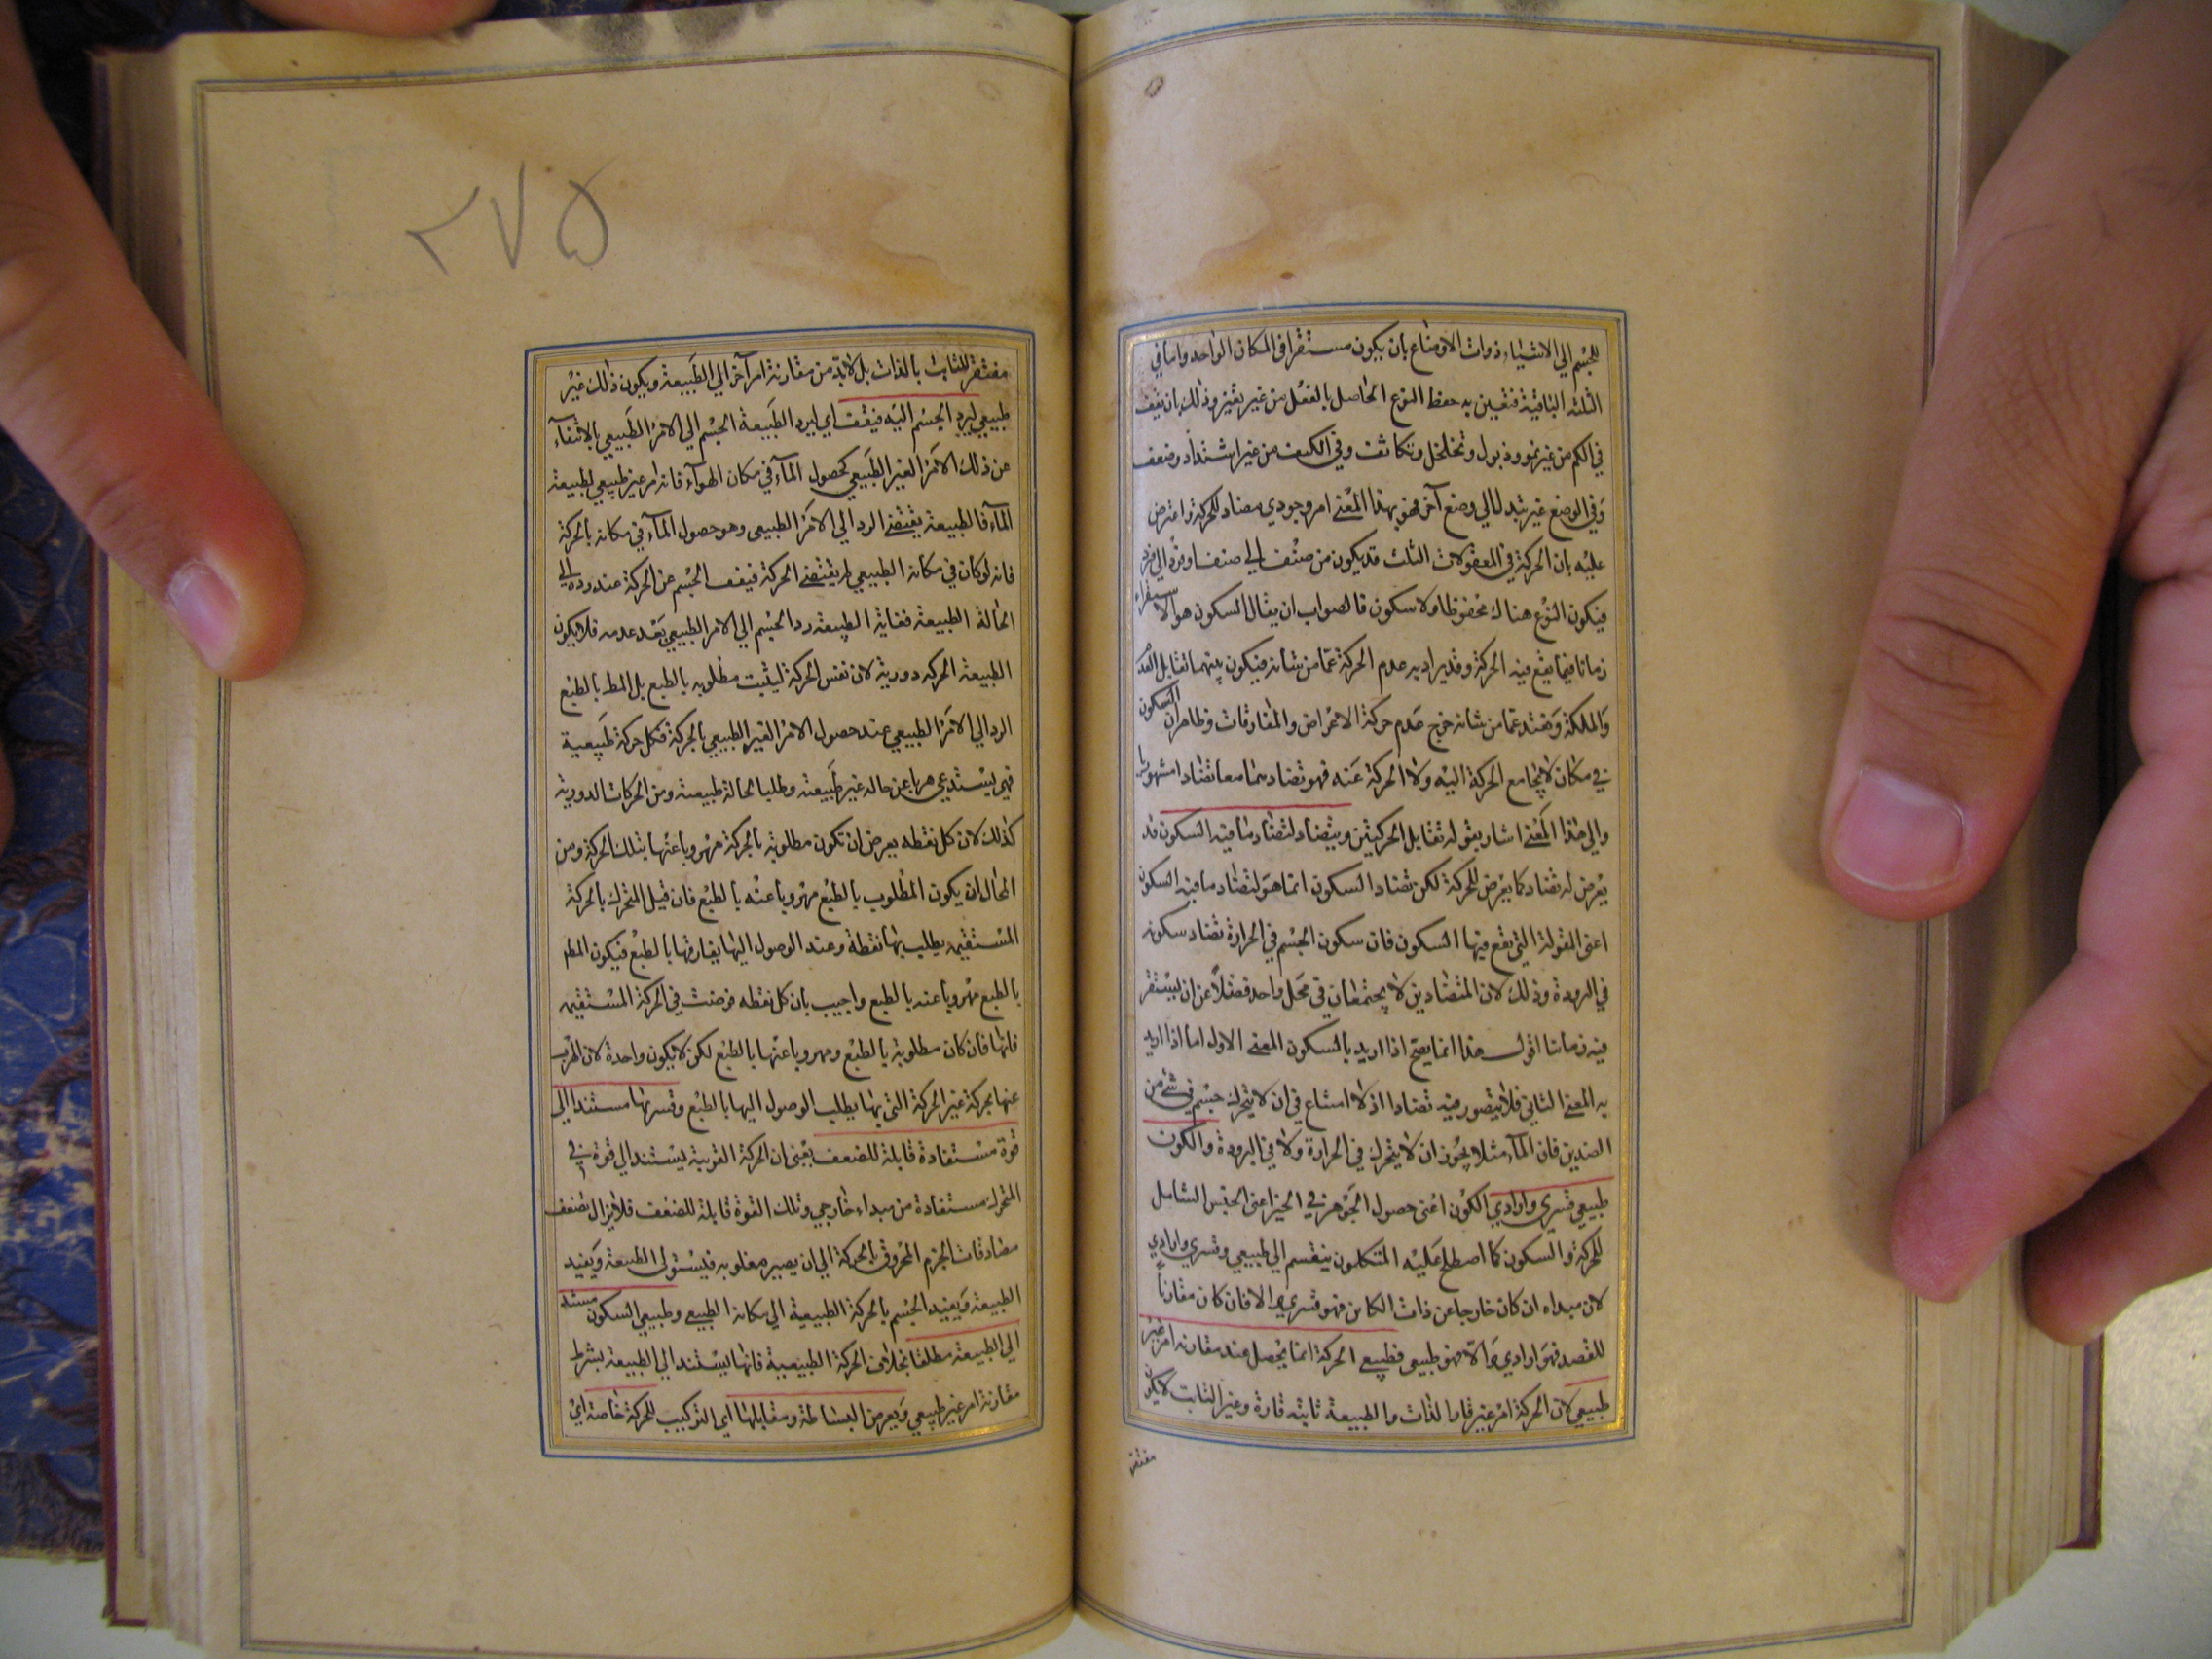 للجسم الي الاشياء ذوات الاوضاع بان يكون مستقرا في المكان الواحد واما في
الثلثه الباقية فتعين به حفظ النوع الحاصل بالفعل من غير تغير وذلك بان يقف
في الكم من غير نمو وذبول وتخلخل وتكاثف وفي الكيف من غير اشتداد وضعف
وفي الوضع غير تبدل الي وضع آخر فهو بهذا المعني امر وجودي مضاد للحركة واعترض
عليه بان الحركة في المعقولات الثلث قد يكون من صنف الي صنف او فرد الي فرد
فيكون النوع هناك محفوظا ولا سكون فالصواب ان يقال السكون هو الاستقرار
زمانا فيما يقع فيه الحركة وقد يراد به عدم الحركة عما من شانه فيكون بينهما تقابل العدم
والملكة وبقيد عما من شانه خرج عدم حركة الاعراض والمفارقات وظاهر ان السكون
في مكان لا يجامع الحركة اليه ولا الحركة عنه فهو تضادهما معا تضادا مشهورا
والي هذا المعني اشار بقوله تقابل الحركتين ويتضاد لتضاد ما فيه السكون قد
يعرض له تضاد كما يعرض للحركة لكن تضاد السكون انما هو لتضاد ما فيه السكون
اعني المقولة التي يقع فيها السكون فان سكون الجسم في الحرارة تضاد سكونه
في البرودة وذلك لان المتضادين لا يجتمعان في محل واحد فضلاً عن ان يستقر
فيه زمانا اقول هذا انما يصح اذا اريد بالسكون المعني الاول اما اذا اريد
به المعني الثاني فلا يتصور فيه تضادا اذ لا امتناع في ان لا يتحرك جسم في شيء من
الضدين فان الماء مثلا يجوز ان لا يتحرك في الحرارة ولا في البرودة والكون
طبيعي وقسري وارادي الكون اعني حصول الجوهر في الحيز اعني الجنس الشامل
للحركة والسكون كما اصطلح عليه المتكلمون ينقسم الي طبيعي وقسري وارادي
لان مبداه ان كان خارجا عن ذات الكائن فهو قسري والا فان كان مقارناً
للقصد فهو ارادي والا فهو طبيعي فطبيعي الحركة انما يحصل عند مقارنة امر غير
طبيعي لان الحركة امر غير قار الذات والطبيعة ثابته قارة وغير الثابت لا يكون
مفتقر
٢٧٥
مفتقرا للثابت بالذات بل لابد من مقارنة امر آخر الي الطبيعة ويكون ذلك غير
طبيعي ليرد الجسم اليه فيقف اي ليرد الطبيعة الجسم الي الامر الطبيعي بالانتفاء
عن ذلك الامر الغير الطبيعي كحصول الماء في مكان الهواء فانه امر غير طبيعي لطبيعة
الماء فالطبيعة يقتضي الرد الي الامر الطبيعي وهو حصول الماء في مكانه بالحركة
فانه لو كان في مكانه الطبيعي لم يقتضي الحركة فيقف الجسم عن الحركة عند رده الي
الحالة الطبيعة فغاية الطبيعة رد الجسم الي الامر الطبيعي بعد عدمه فلا يكون
الطبيعة الحركه دورية لان نفس الحركة ليست مطلوبه بالطبع بل المط بالطبع
الرد الي الامر الطبيعي عند حصول الامر الغير الطبيعي بالحركة فكل حركة طبيعية
فهي يستدعي هربا عن حاله غير طبيعته وطلبا لحالة طبيعته ومن الحركات الدورية
كذلك لان كل نقطه يعرض ان تكون مطلوبة بالحركة مهروبا عنها بتلك الحركة ومن
المحال ان يكون المطلوب بالطبع مهروبا عنه بالطبع فان قيل المتحرك بالحركة
المستقيمه يطلب بها نقطة وعند الوصول اليها يفارقها بالطبع فيكون المط
بالطبع مهروبا عنه بالطبع واجيب بان كل نقطه فرضت في الحركة المستقيمه
فانها فان كان مطلوبة بالطبع ومهروبا عنها بالطبع لكن لا يكون واحدة لان الهرب
عنها بحركة غير الحركة التي بها يطلب الوصول اليها بالطبع وقسريها مستندا الي
قوة مستفادة قابلة للضعف يعني ان الحركة القسرية يستند الي قوة في
المتحرك مستفادة من مبداء خارجي وتلك القوة قابلة للضعف فلا يزال تضعف
مصادقات الجزم المخروق بالحركة الي ان يصير مغلوبه فيستولي الطبيعة ويفيد
الطبيعة ويعيد الجسم بالحركة الطبيعية الي مكانه الطبيعي وطبيعي السكون مستند
الي الطبيعة مطلقا بخلاف الحركة الطبيعية فانها يستند الي الطبيعة بشرط
مقارنة امر غير طبيعي ويعرض البساطة ومقابلها اي التركيب للحركة خاصة اي